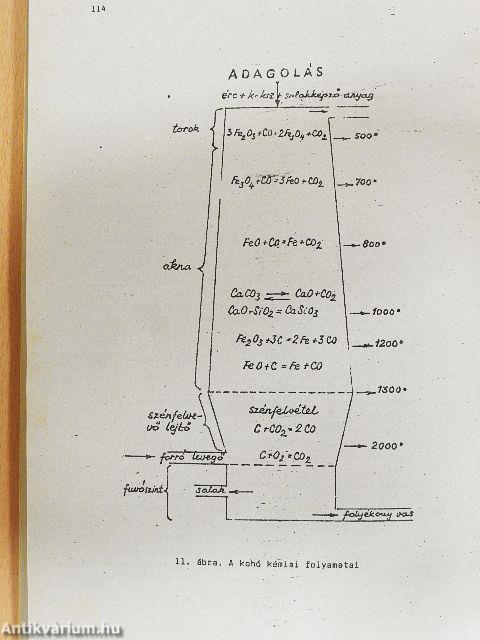 114
ADAGOLÁS
érc + koksz + salakképző anyag
torok
3Fe₂O₃+CO=2Fe₃O₄+CO₂
500°
Fe₃O₄+CO=3FeO+CO₂
700°
FeO+CO=Fe+CO₂
800°
akna
CaCO₃ ⇌ CaO+CO₂
CaO+SiO₂=CaSiO₃
1000°
Fe₂O₃+3C=2Fe+3CO
1200°
FeO+C=Fe+CO
1300°
szénfelve-
vő lejtő
szénfelvétel
C+CO₂=2CO
2000°
forró levegő
C+O₂=CO₂
fuvószint
salak
folyékony vas
11. ábra. A kohó kémiai folyamatai
Antikvárium.hu